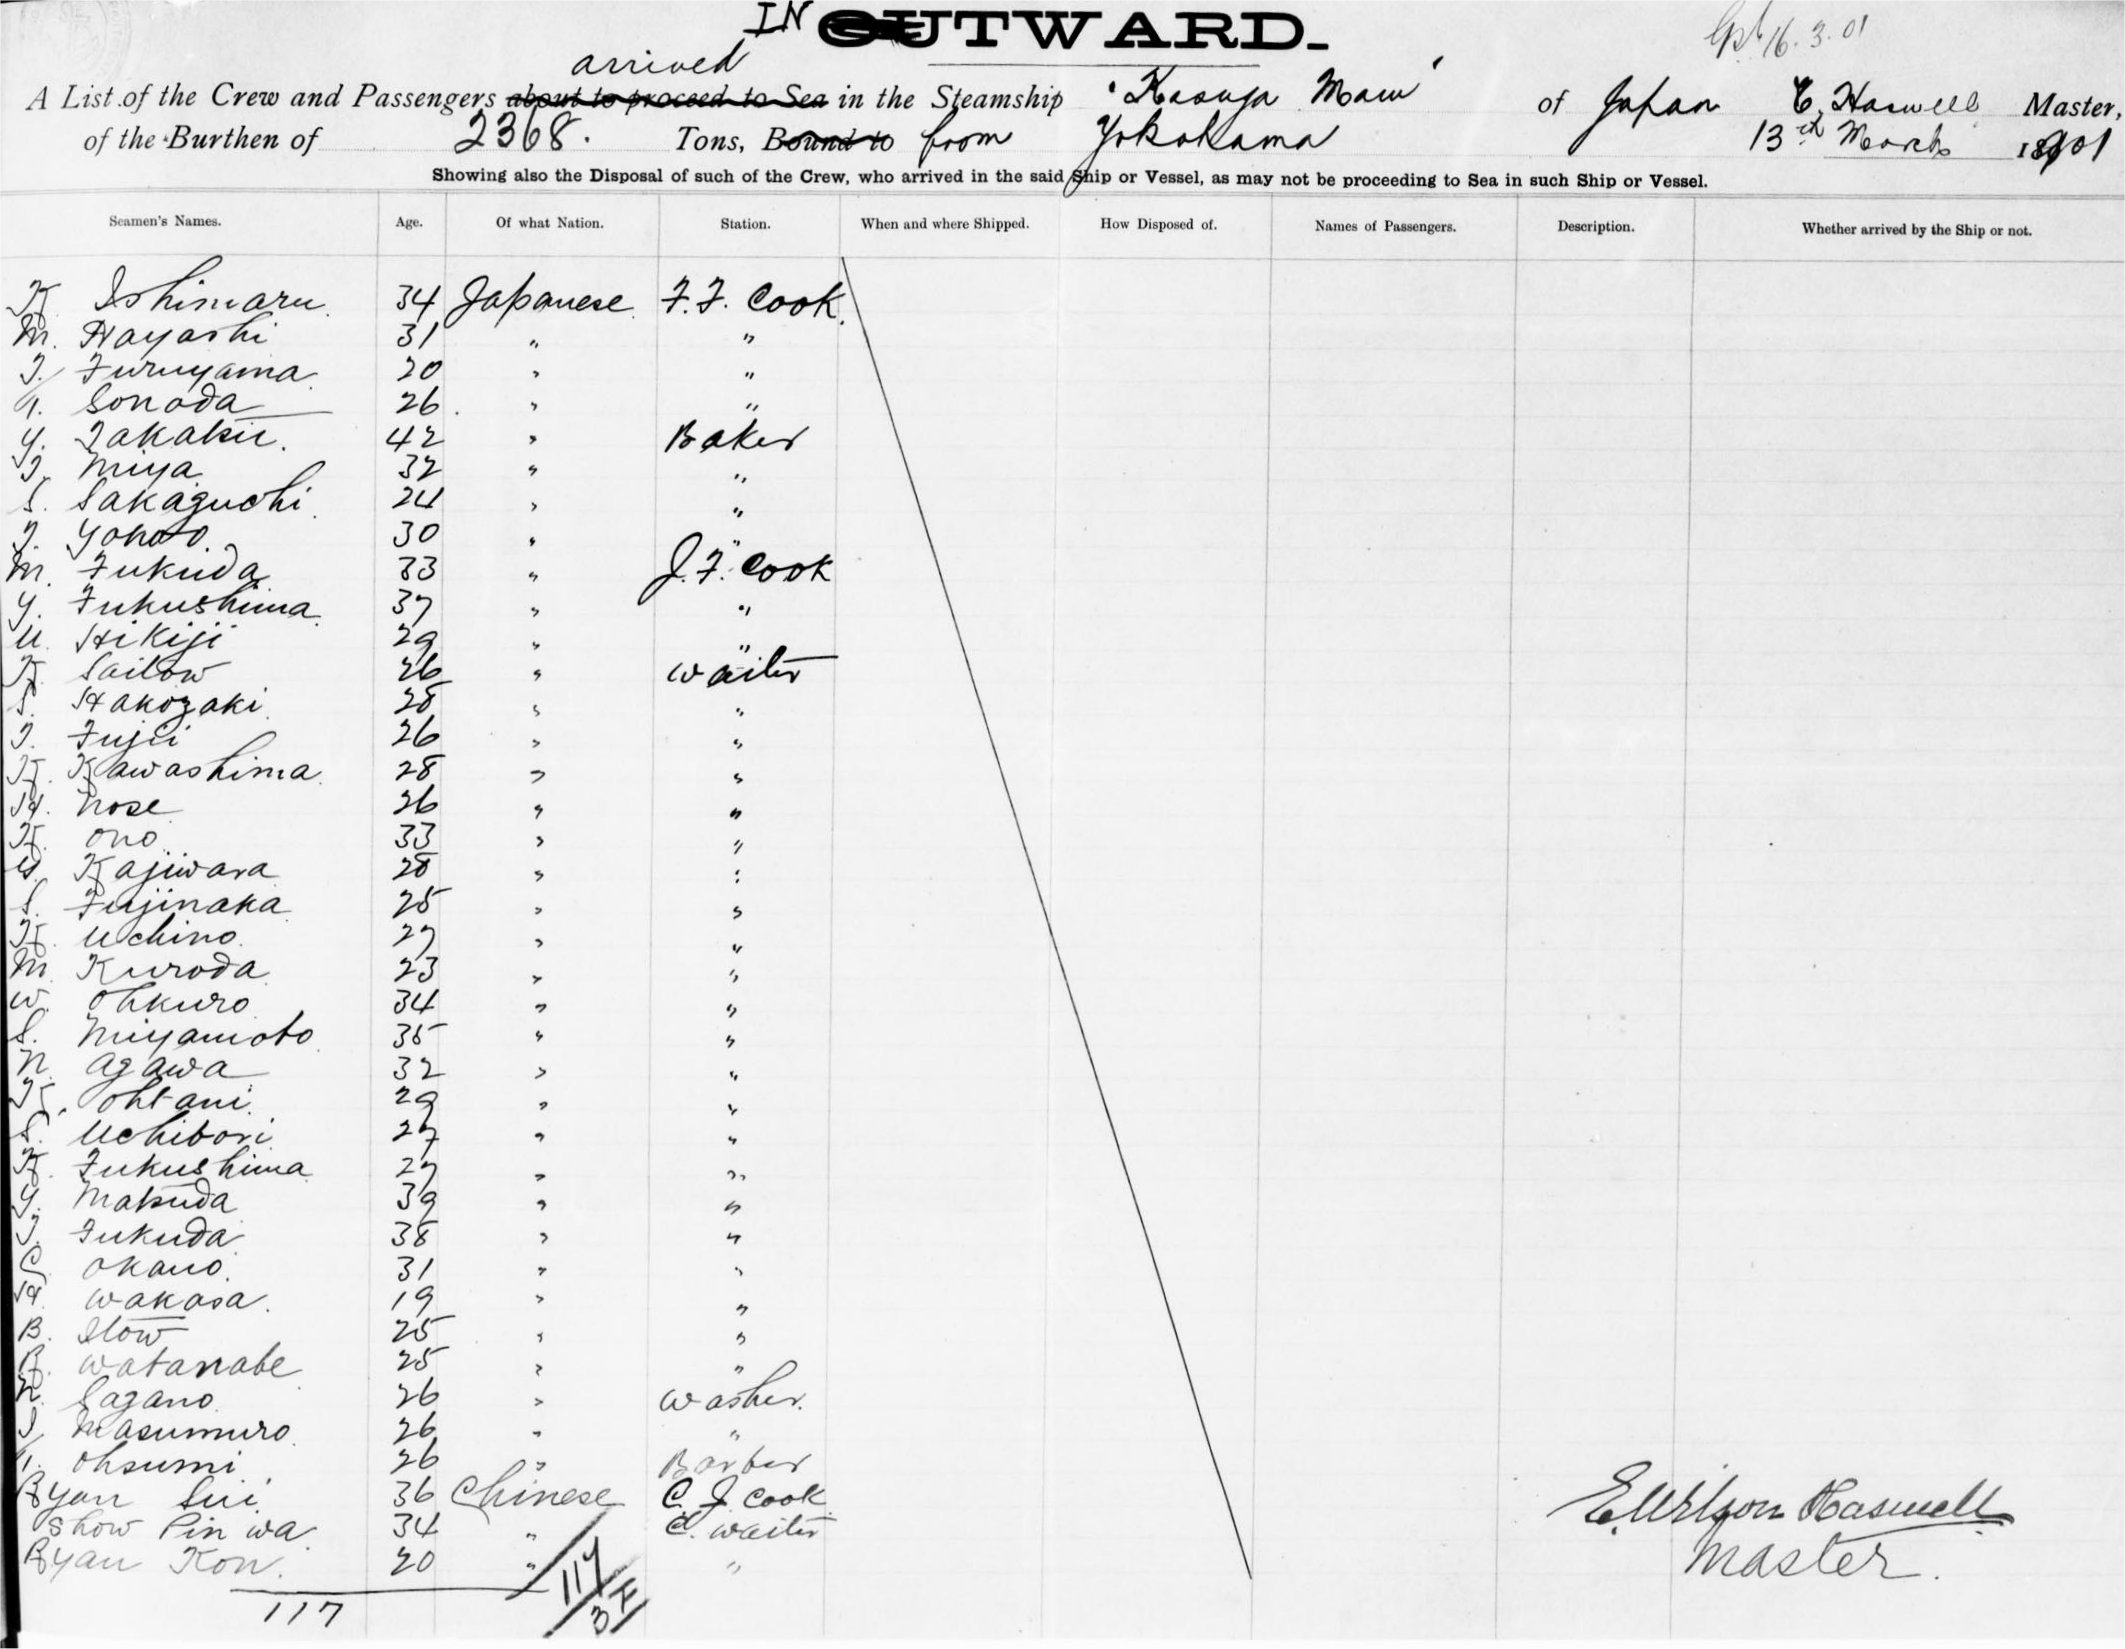 IN OUTWARD.
16.3.01
arrived
A List of the Crew and Passengers about to proceed to Sea in the Steamship 'Kasuga Maru' of Japan E. Haswell Master,
of the Burthen of 2368. Tons, Bound to from Yokohama 13th March 1901
Showing also the Disposal of such of the Crew, who arrived in the said Ship or Vessel, as may not be proceeding to Sea in such Ship or Vessel.
Seamen's Names. Age. Of what Nation. Station. When and where Shipped. How Disposed of. Names of Passengers. Description. Whether arrived by the Ship or not.
K. Ishimaru. 34 Japanese. F.F. Cook.
M. Hayashi 31 " "
T. Furuyama. 20 " "
T. Sonoda 26 " "
Y. Takaku. 42 " Baker
T. Miya 32 " "
S. Sakaguchi. 24 " "
T. 30 " "
M. Fukuda 33 " J.F. Cook
Y. Fukushima. 37 " "
U. Hikiji 29 " "
K. Saitow 26 " Waiter
S. Hakozaki. 28 " "
T. Fujii 26 " "
K. Kawashima. 28 " "
H. Nose 26 " "
K. Ono 33 " "
Kajiwara 28 " "
S. Fujinaka 25 " "
K. Uchino. 27 " "
M. Kuroda 23 " "
W. Ohkuro 34 " "
S. Miyamoto 35 " "
N. Agawa 32 " "
K. Ohtani. 29 " "
S. Uchibori 27 " "
K. Fukushima 27 " "
Y. Matsuda 39 " "
T. Fukuda 38 " "
Okano. 31 " "
H. Wakasa. 19 " "
B. Itow 25 " "
Watanabe 25 " "
N. Sagano. 26 " Washer.
Masumuro. 26 " "
T. Ohsumi 26 " Barber
Ryan Sui 36 Chinese C. J. Cook
Show Pin Wa. 34 " C. Waiter
Ryan Kon. 20 " "
117
117
3 F
E. Wilson Haswell
Master.